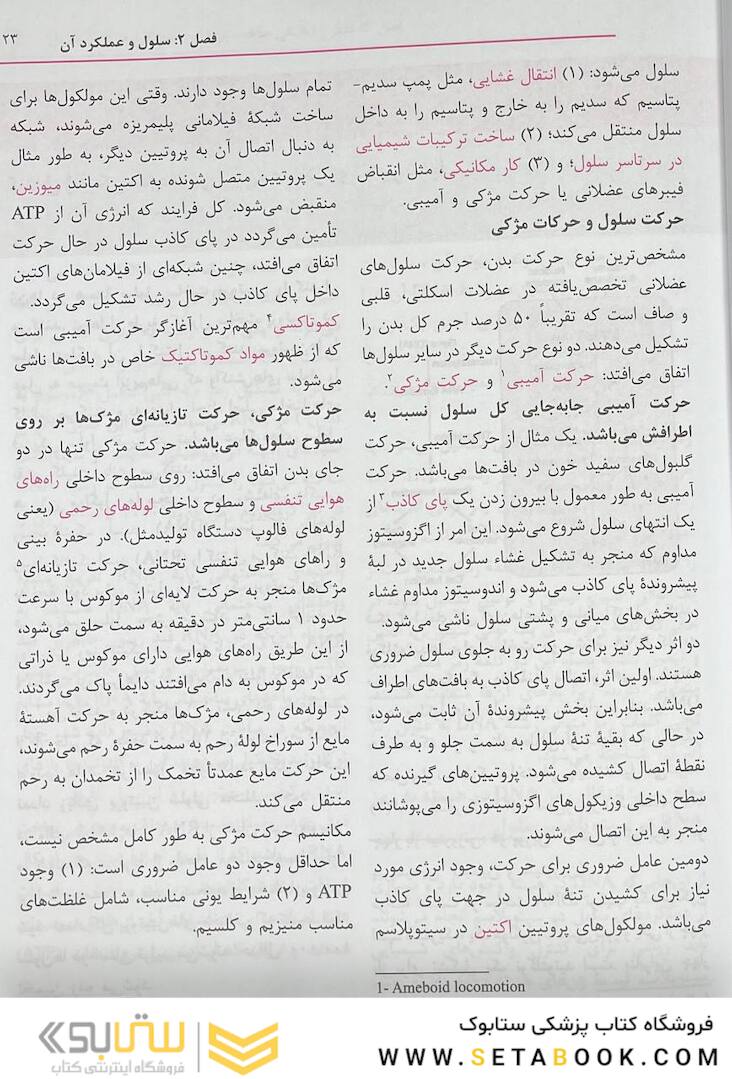 فصل ۲: سلول و عملکرد آن
۲۳
سلول می‌شود: (۱) انتقال غشایی، مثل پمپ سدیم-
پتاسیم که سدیم را به خارج و پتاسیم را به داخل
سلول منتقل می‌کند؛ (۲) ساخت ترکیبات شیمیایی
در سرتاسر سلول؛ و (۳) کار مکانیکی، مثل انقباض
فیبرهای عضلانی یا حرکت مژکی و آمیبی.
حرکت سلول و حرکات مژکی
مشخص‌ترین نوع حرکت بدن، حرکت سلول‌های
عضلانی تخصص‌یافته در عضلات اسکلتی، قلبی
و صاف است که تقریباً ۵۰ درصد جرم کل بدن را
تشکیل می‌دهند. دو نوع حرکت دیگر در سایر سلول‌ها
اتفاق می‌افتد: حرکت آمیبی۱ و حرکت مژکی۲.
حرکت آمیبی جابه‌جایی کل سلول نسبت به
اطرافش می‌باشد. یک مثال از حرکت آمیبی، حرکت
گلبول‌های سفید خون در بافت‌ها می‌باشد. حرکت
آمیبی به طور معمول با بیرون زدن یک پای کاذب۳ از
یک انتهای سلول شروع می‌شود. این امر از اگزوسیتوز
مداوم که منجر به تشکیل غشاء سلول جدید در لبهٔ
پیشروندهٔ پای کاذب می‌شود و اندوسیتوز مداوم غشاء
در بخش‌های میانی و پشتی سلول ناشی می‌شود.
دو اثر دیگر نیز برای حرکت رو به جلوی سلول ضروری
هستند. اولین اثر، اتصال پای کاذب به بافت‌های اطراف
می‌باشد. بنابراین بخش پیشروندهٔ آن ثابت می‌شود،
در حالی که بقیهٔ تنهٔ سلول به سمت جلو و به طرف
نقطهٔ اتصال کشیده می‌شود. پروتیین‌های گیرنده که
سطح داخلی وزیکول‌های اگزوسیتوزی را می‌پوشانند
منجر به این اتصال می‌شوند.
دومین عامل ضروری برای حرکت، وجود انرژی مورد
نیاز برای کشیدن تنهٔ سلول در جهت پای کاذب
می‌باشد. مولکول‌های پروتیین اکتین در سیتوپلاسم
1- Ameboid locomotion
تمام سلول‌ها وجود دارند. وقتی این مولکول‌ها برای
ساخت شبکهٔ فیلامانی پلیمریزه می‌شوند، شبکه
به دنبال اتصال آن به پروتیین دیگر، به طور مثال
یک پروتیین متصل شونده به اکتین مانند میوزین،
منقبض می‌شود. کل فرایند که انرژی آن از ATP
تأمین می‌گردد در پای کاذب سلول در حال حرکت
اتفاق می‌افتد، چنین شبکه‌ای از فیلامان‌های اکتین
داخل پای کاذب در حال رشد تشکیل می‌گردد.
کموتاکسی۴ مهم‌ترین آغازگر حرکت آمیبی است
که از ظهور مواد کموتاکتیک خاص در بافت‌ها ناشی
می‌شود.
حرکت مژکی، حرکت تازیانه‌ای مژک‌ها بر روی
سطوح سلول‌ها می‌باشد. حرکت مژکی تنها در دو
جای بدن اتفاق می‌افتد: روی سطوح داخلی راه‌های
هوایی تنفسی و سطوح داخلی لوله‌های رحمی (یعنی
لوله‌های فالوپ دستگاه تولیدمثل). در حفرهٔ بینی
و راهای هوایی تنفسی تحتانی، حرکت تازیانه‌ای۵
مژک‌ها منجر به حرکت لایه‌ای از موکوس با سرعت
حدود ۱ سانتی‌متر در دقیقه به سمت حلق می‌شود،
از این طریق راه‌های هوایی دارای موکوس یا ذراتی
که در موکوس به دام می‌افتند دایماً پاک می‌گردند.
در لوله‌های رحمی، مژک‌ها منجر به حرکت آهستهٔ
مایع از سوراخ لولهٔ رحم به سمت حفرهٔ رحم می‌شوند،
این حرکت مایع عمدتاً تخمک را از تخمدان به رحم
منتقل می‌کند.
مکانیسم حرکت مژکی به طور کامل مشخص نیست،
اما حداقل وجود دو عامل ضروری است: (۱) وجود
ATP و (۲) شرایط یونی مناسب، شامل غلظت‌های
مناسب منیزیم و کلسیم.
فروشگاه کتاب پزشکی ستابوک
WWW.SETABOOK.COM
ستابوک
فروشگاه اینترنتی کتاب